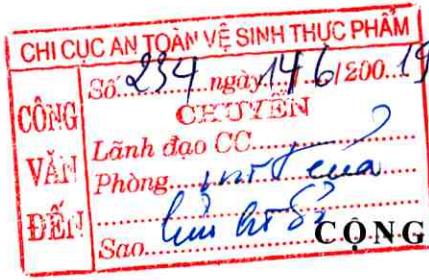 CHI CỤC AN TOÀN VỆ SINH THỰC PHẨM
CÔNG VĂN ĐẾN
Số 234 ngày 14/6/200 19
CHUYỂN
Lãnh đạo CC
Phòng
Sao
CỘNG